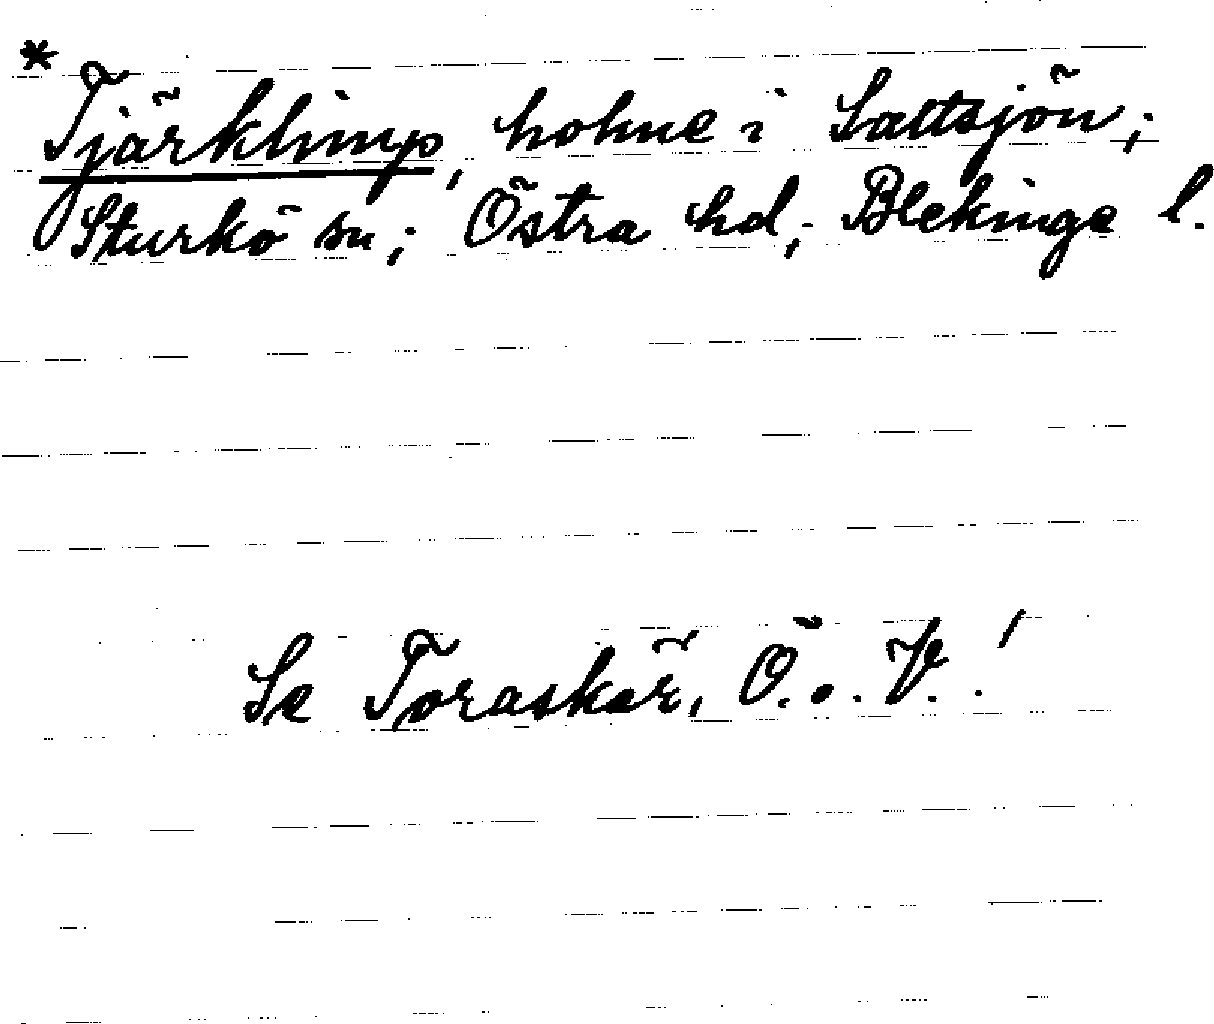 *Tjärklimp, holme i Saltsjön;
Sturkö sn; Östra hd, Blekinge l.
Se Toraskär, Ö. o. V.!